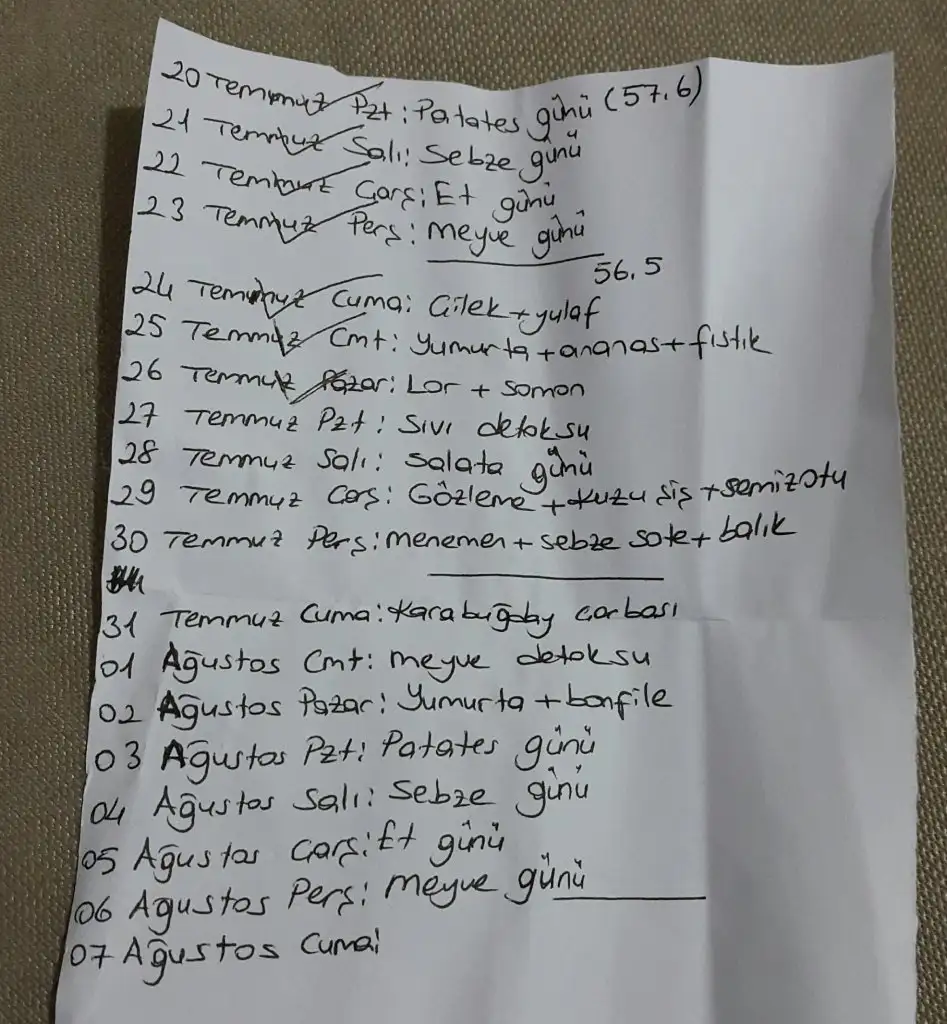 20 Temmuz Pzt: Patates günü (57.6)
21 Temmuz Salı: Sebze günü
22 Temmuz Çarş: Et günü
23 Temmuz Perş: meyve günü
56.5
24 Temmuz Cuma: Çilek + yulaf
25 Temmuz Cmt: Yumurta + ananas + fıstık
26 Temmuz Pazar: Lor + somon
27 Temmuz Pzt: Sıvı detoksu
28 Temmuz Salı: Salata günü
29 Temmuz Çarş: Gözleme + kuzu şiş + semizotu
30 Temmuz Perş: menemen + sebze sote + balık
31 Temmuz Cuma: Karabuğday çorbası
01 Ağustos Cmt: meyve detoksu
02 Ağustos Pazar: Yumurta + bonfile
03 Ağustos Pzt: Patates günü
04 Ağustos Salı: Sebze günü
05 Ağustos Çarş: Et günü
06 Agustos Perş: Meyve günü
07 Ağustos Cuma: